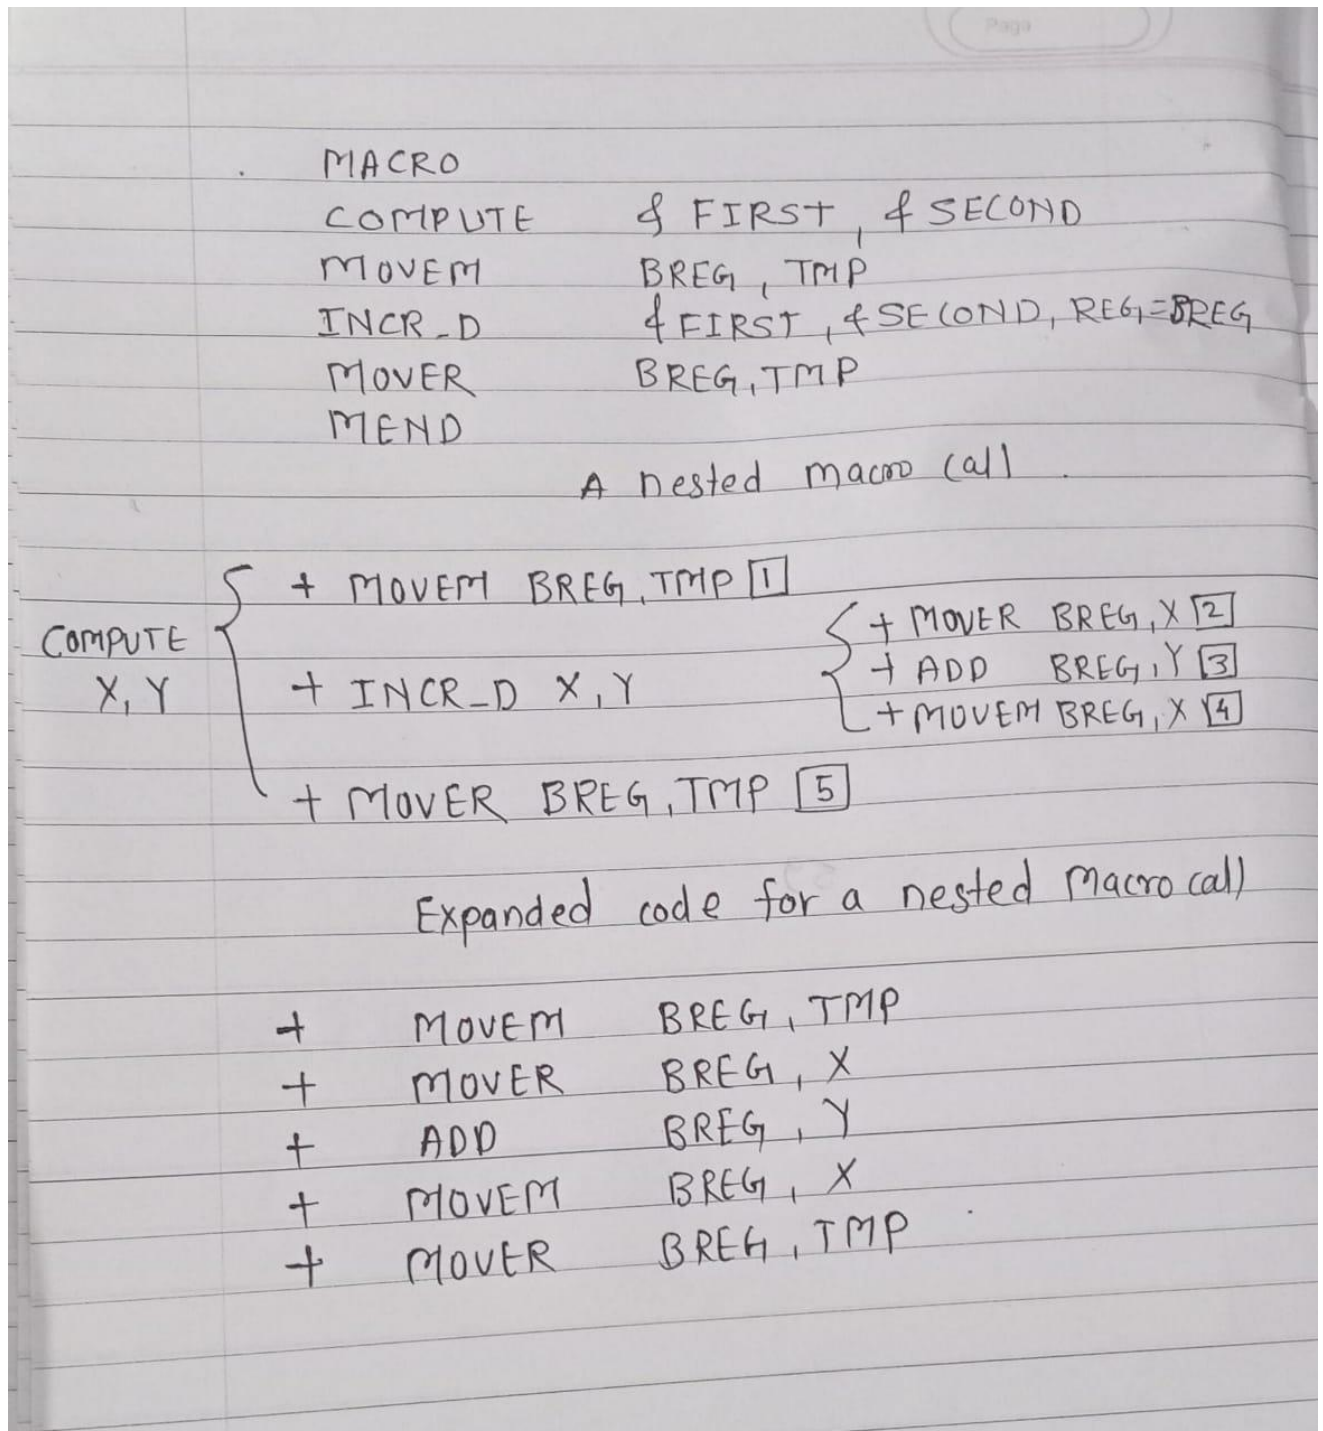 Page
MACRO
COMPUTE & FIRST, & SECOND
MOVEM BREG, TMP
INCR_D & FIRST, & SECOND, REG=BREG
MOVER BREG, TMP
MEND
A nested macro call.
+ MOVEM BREG, TMP 1
+ MOVER BREG, X 2
COMPUTE
+ ADD BREG, Y 3
X, Y + INCR_D X, Y
+ MOVEM BREG, X 4
+ MOVER BREG, TMP 5
Expanded code for a nested Macro call
+ MOVEM BREG, TMP
+ MOVER BREG, X
+ ADD BREG, Y
+ MOVEM BREG, X
+ MOVER BREG, TMP